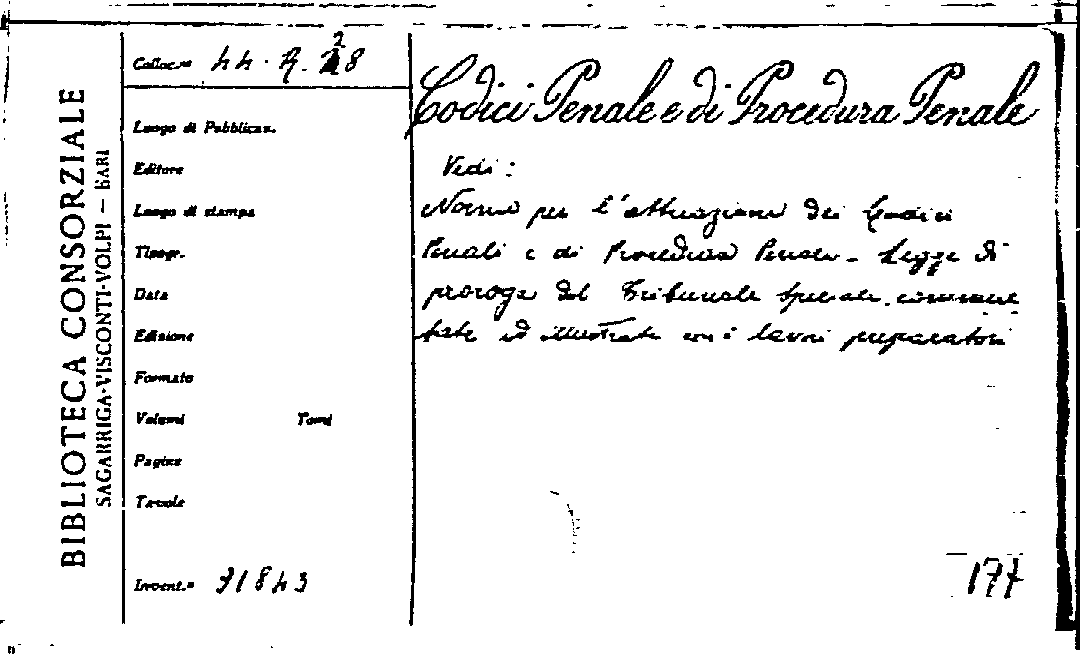 BIBLIOTECA CONSORZIALE
SAGARRIGA-VISCONTI-VOLPI — BARI
Colloc.ne 44. R. 28
2
Luogo di Pubblicaz.
Editore
Luogo di stampa
Tipogr.
Data
Edizione
Formato
Volumi Tomi
Pagine
Tavole
Invent.º 31843
Codici Penale e di Procedura Penale
Vedi:
Norme per l'attuazione dei Codici
Penali e di Procedura Penale - Legge di
proroga del Tribunale Speciale, commen
tate ed illustrate con i lavori preparatori
177